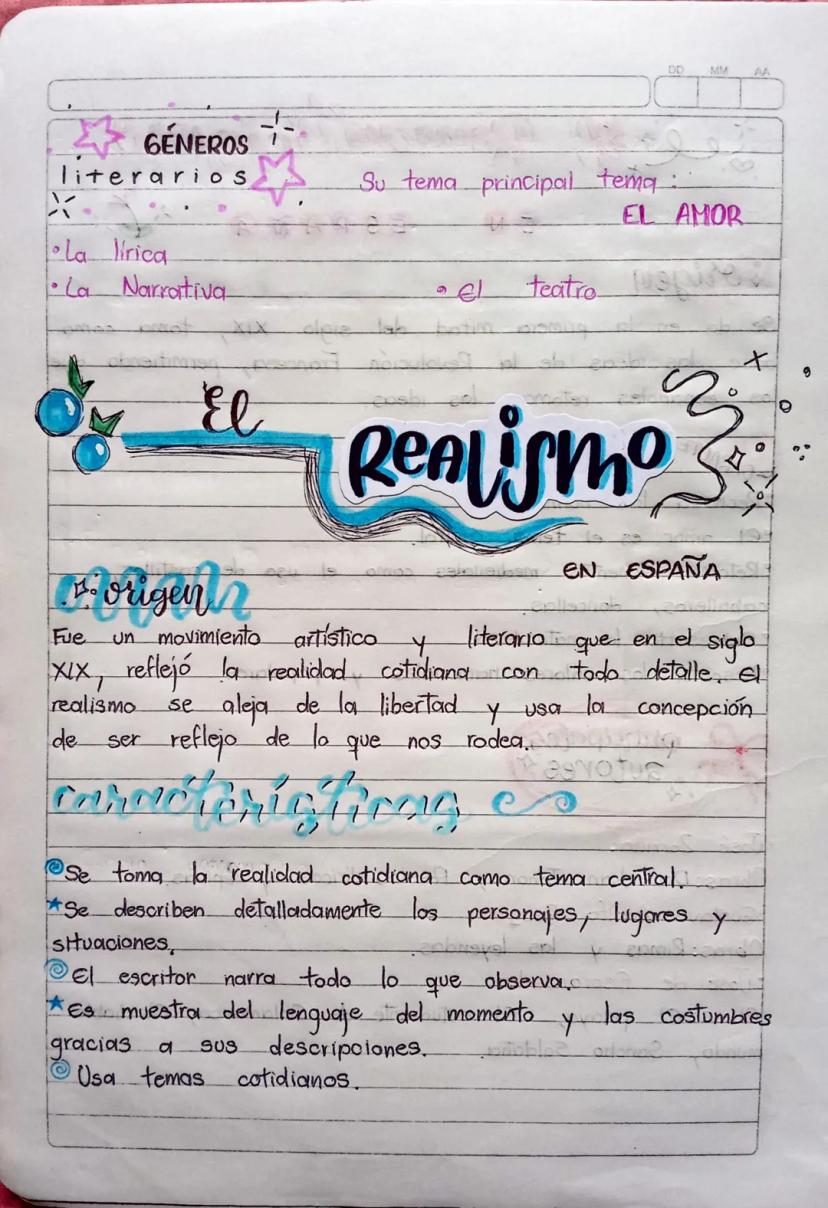 DD MM AA
GÉNEROS
literarios
Su tema principal tema:
EL AMOR
• La lírica
• La Narrativa
• El teatro
El
REALISMO
EN ESPAÑA
origen
Fue un movimiento artístico y literario que en el siglo
XIX, reflejó la realidad cotidiana con todo detalle. El
realismo se aleja de la libertad y usa la concepción
de ser reflejo de lo que nos rodea.
características
Se toma la realidad cotidiana como tema central.
★Se describen detalladamente los personajes, lugares y
situaciones.
El escritor narra todo lo que observa.
★Es muestra del lenguaje del momento y las costumbres
gracias a sus descripciones.
Usa temas cotidianos.